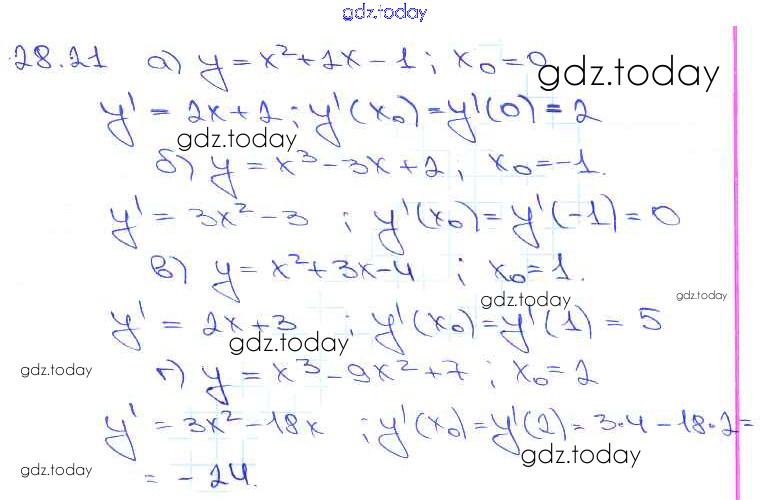 gdz.today
28.21 а) y = x² + 2x - 1; x₀ = 0
gdz.today
y' = 2x + 2; y'(x₀) = y'(0) = 2
gdz.today
б) y = x³ - 3x + 2; x₀ = -1.
y' = 3x² - 3 ; y'(x₀) = y'(-1) = 0
в) y = x² + 3x - 4 ; x₀ = 1.
gdz.today
gdz.today
y' = 2x + 3 ; y'(x₀) = y'(1) = 5
gdz.today
gdz.today
г) y = x³ - 9x² + 7; x₀ = 2
y' = 3x² - 18x ; y'(x₀) = y'(2) = 3·4 - 18·2 =
gdz.today
gdz.today
= - 24.